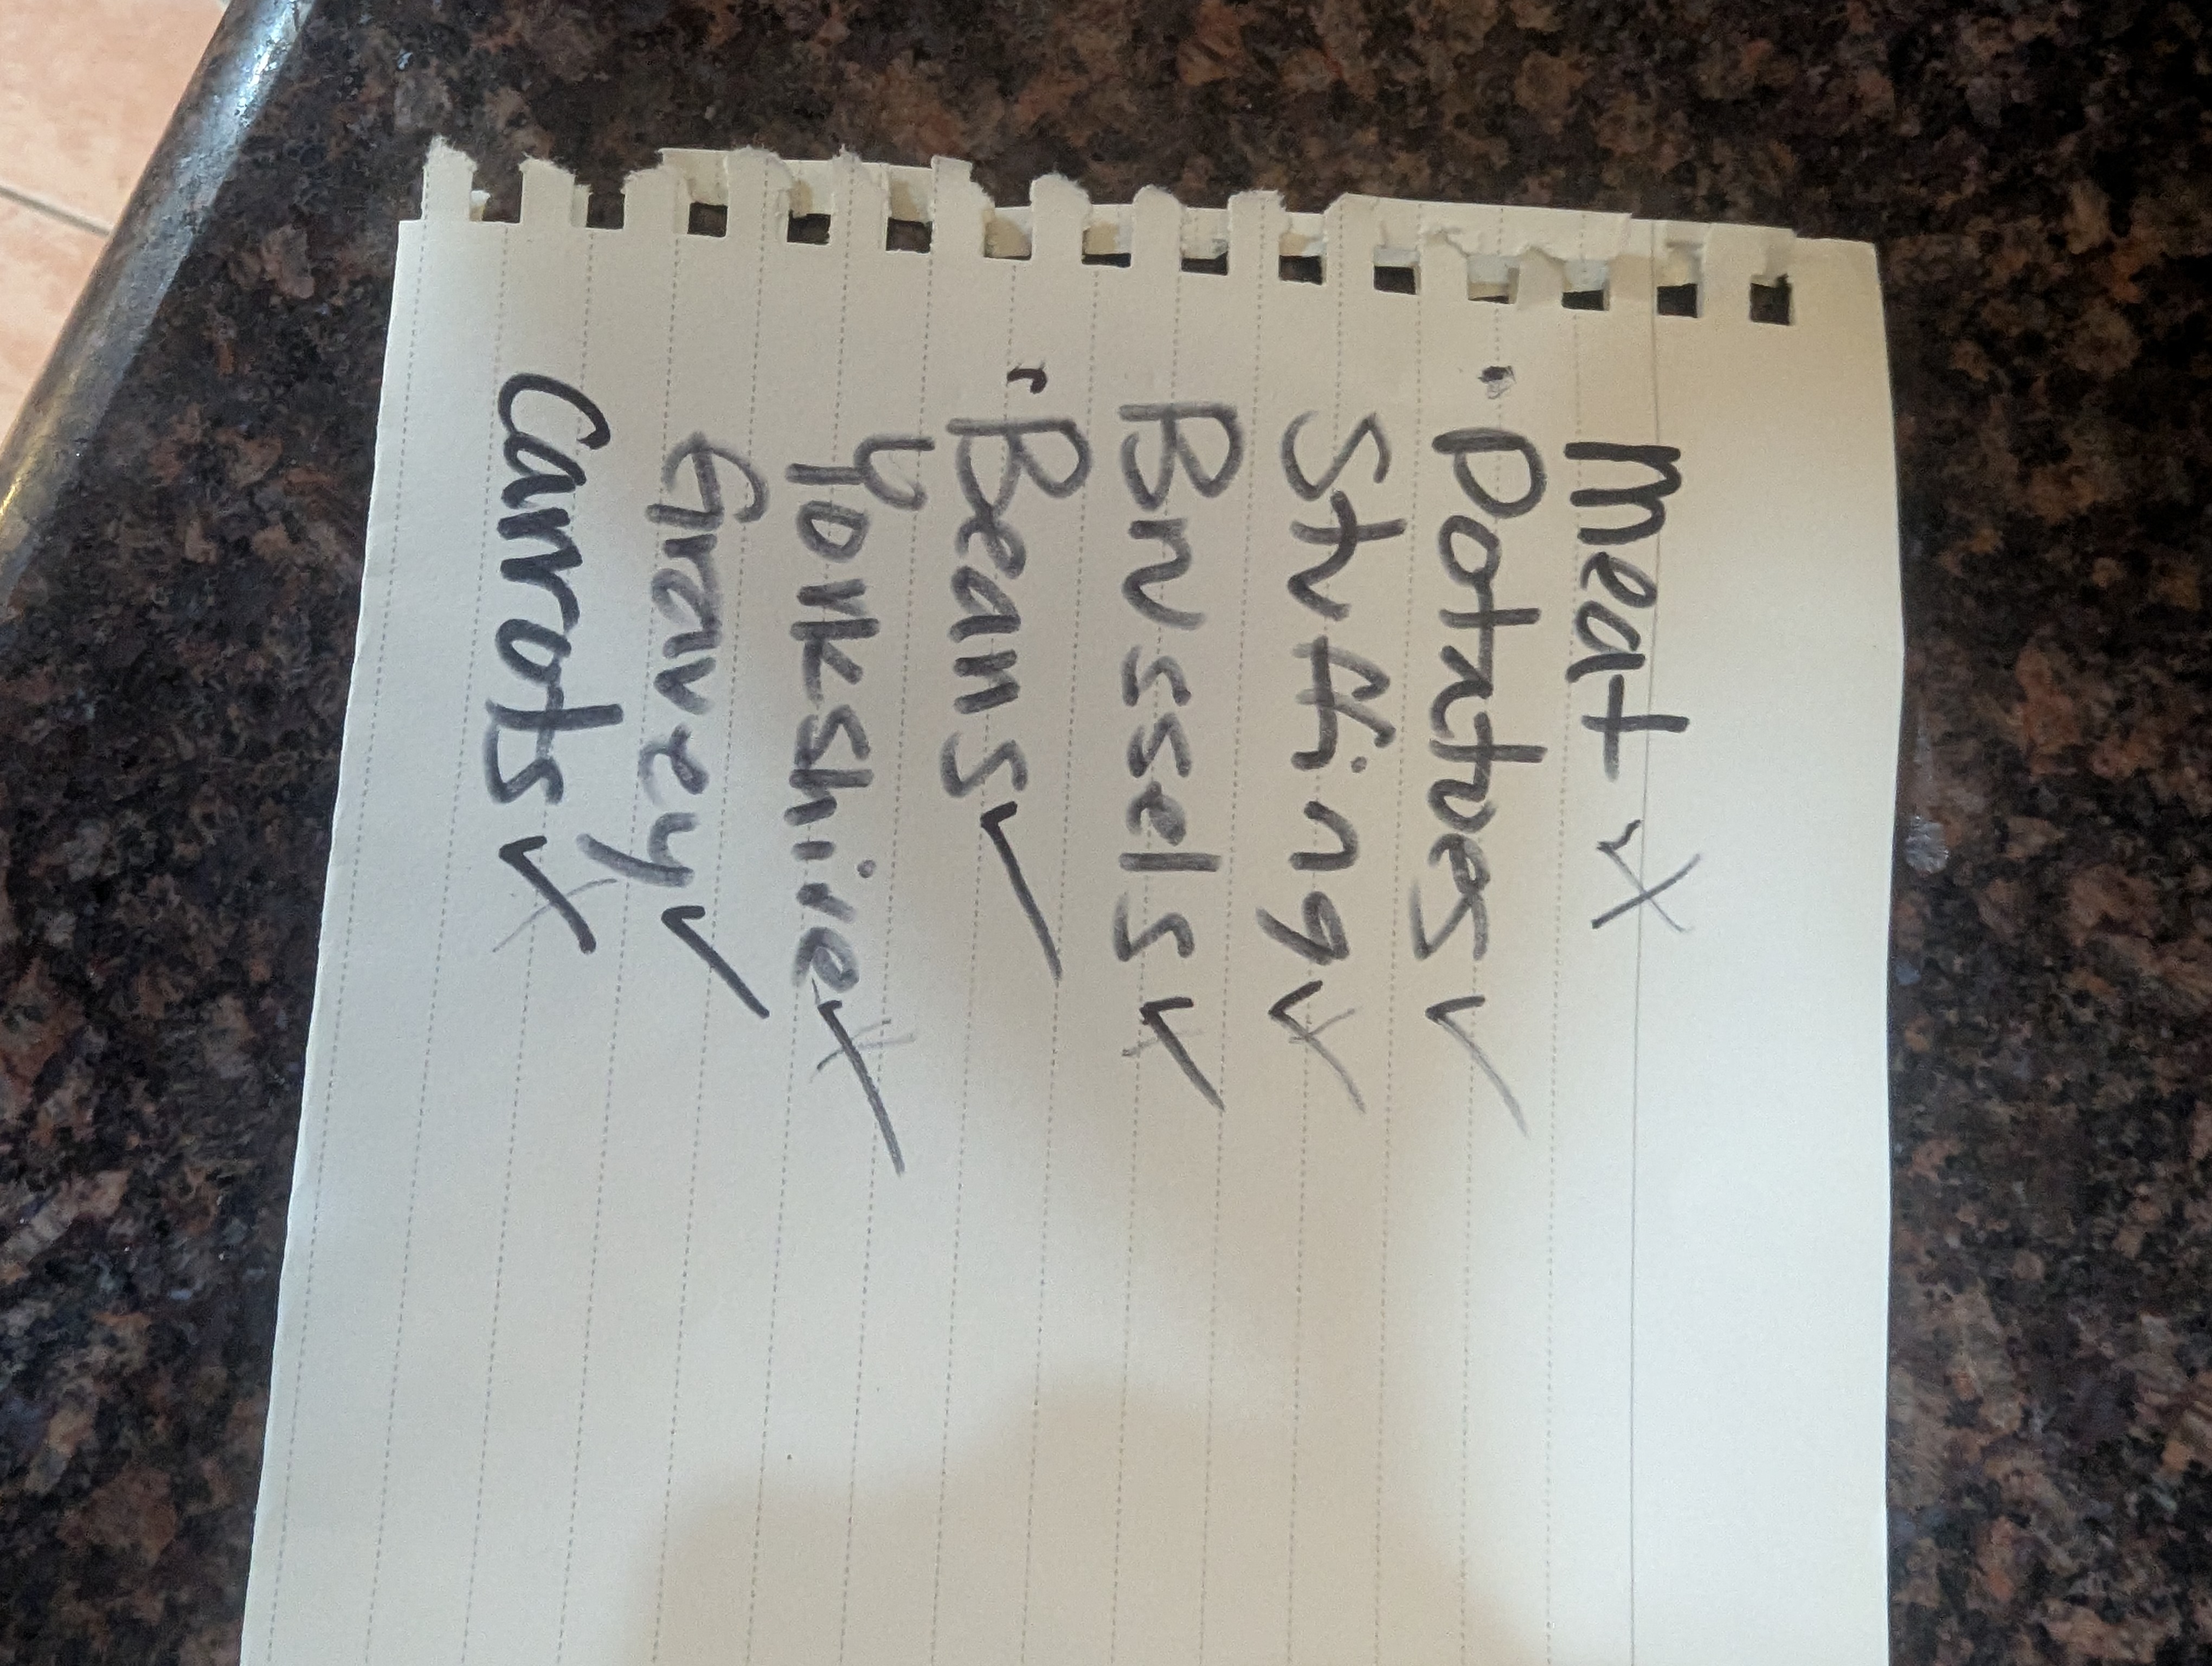 meat ✓ x
· Potatoes ✓
Stuffing ✓ x
Brussels ✓ x
· Beans ✓
Yorkshire ✓ x
Gravey ✓
Carrots ✓ x